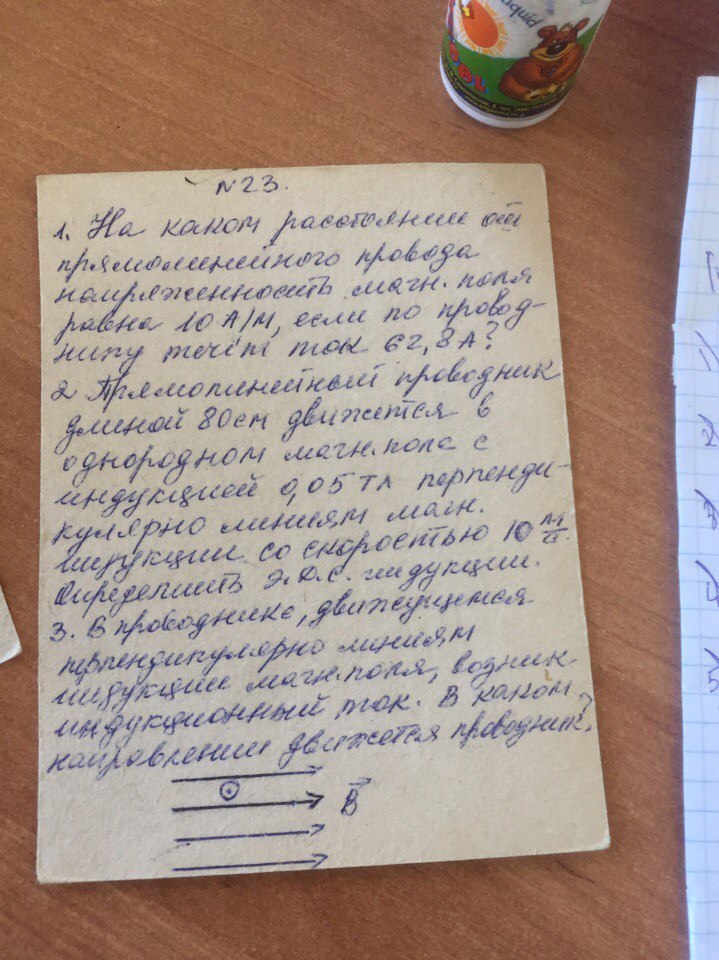 N 23.
1. На каком расстоянии от
прямолинейного провода
напряженность магн. поля
равна 10 А/м, если по провод-
нику течёт ток 62,8 А?
2 Прямолинейный проводник
длиной 80 см движется в
однородном магн. поле с
индукцией 0,05 Тл перпенди-
кулярно линиям магн.
индукции со скоростью 10 м/с.
Определить Э.Д.С. индукции.
3. В проводнике, движущемся
перпендикулярно линиям
индукции магн. поля, возник.
индукционный ток. В каком
направлении движется проводник?
B